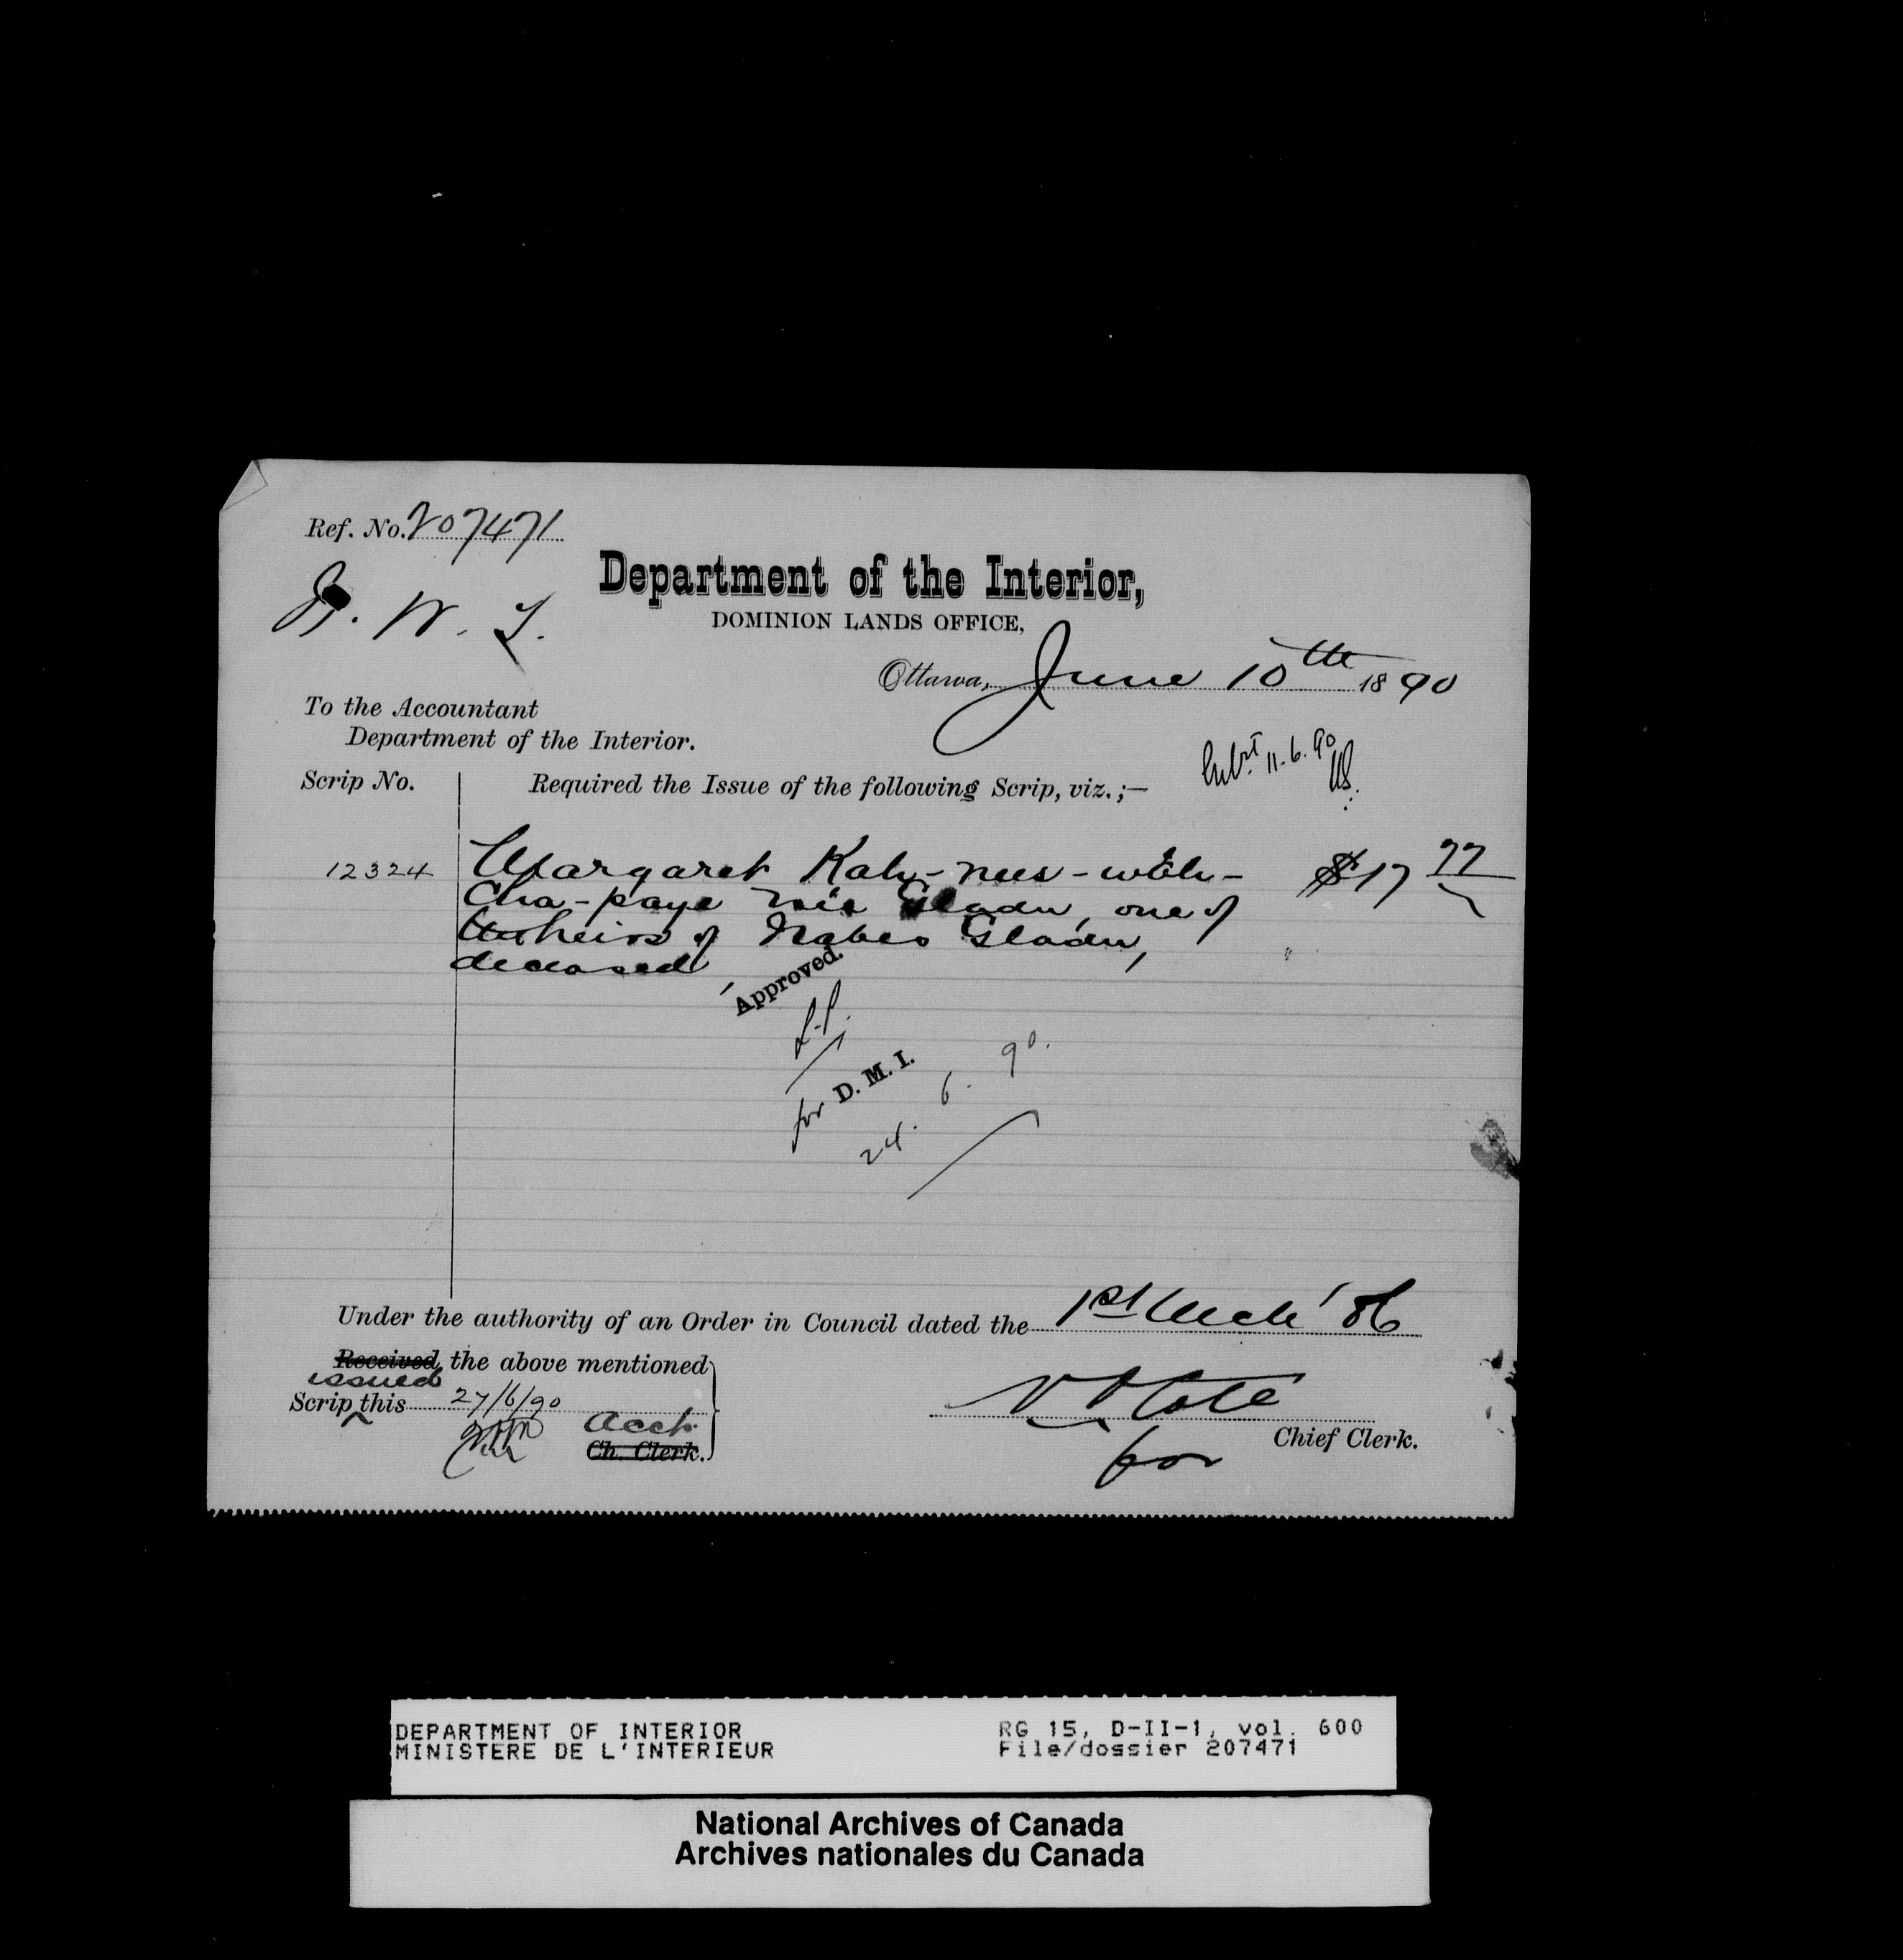 Ref. No. 207471
Department of the Interior,
DOMINION LANDS OFFICE,
Ottawa, June 10th 1890
To the Accountant
Department of the Interior.
11.6.90
Scrip No. Required the Issue of the following Scrip, viz.;—
12324 Margaret Kah-nees-wëh- $17 77
Cha-paye née Gladu, one of
the heirs of Nabes Gladu,
deceased
Approved.
for D. M. I.
24. 6. 90.
Under the authority of an Order in Council dated the 1st Mch '86
Received the above mentioned
issued
Scrip this 27/6/90
Acct.
Ch. Clerk.
Chief Clerk.
for
DEPARTMENT OF INTERIOR RG 15, D-II-1, vol. 600
MINISTERE DE L'INTERIEUR File/dossier 207471
National Archives of Canada
Archives nationales du Canada